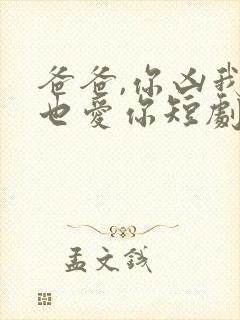 爸爸,你凶我
也愛你短劇
孟文钱